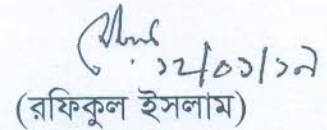 ১২/০১/১৭
(রফিকুল ইসলাম)